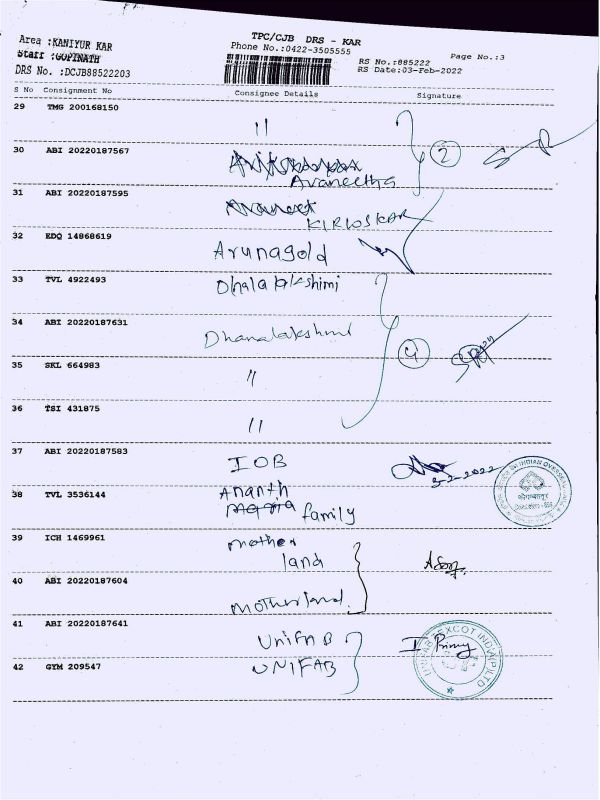 TPC/CJB DRS - KAR
Area :KANIYUR KAR
Phone No.:0422-3505555
Page No.:3
Staff :GOPINATH
RS No.:885222
DRS No. :DCJB88522203
RS Date:03-Feb-2022
S No Consignment No Consignee Details Signature
29 TMG 200168150
11
2
30 ABI 20220187567
Avaneetha
31 ABI 20220187595
KIRLOSKAR
32 EDQ 14868619
Arunagold
33 TVL 4922493
Dhalalakshimi
34 ABI 20220187631
Dhanalakshmi
4
35 SKL 664983
11
36 TSI 431875
11
37 ABI 20220187583
IOB
3-2-2022
38 TVL 3536144
Ananth
family
39 ICH 1469961
mother
land
40 ABI 20220187604
motherland.
41 ABI 20220187641
UNIFAB
42 GYM 209547
UNIFAB